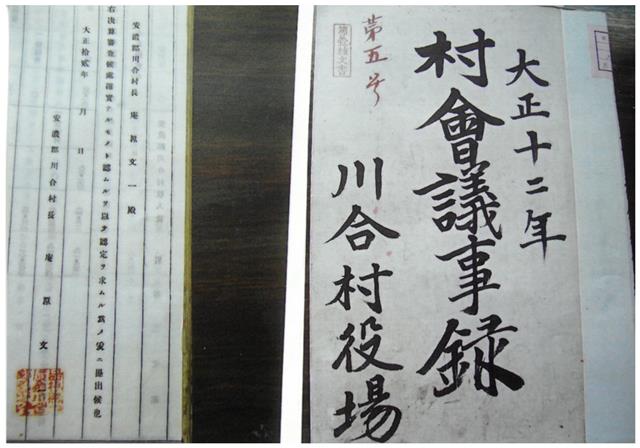 安濃郡川合村長 庵原文一殿
右決算審査候處確實ナルモノト認ムルヲ以テ認定ヲ求ムル爲メ爰ニ提出候也
大正拾貳年 月 日
安濃郡川合村長 庵原文
大正十二年
村會議事録
川合村役場
第五号